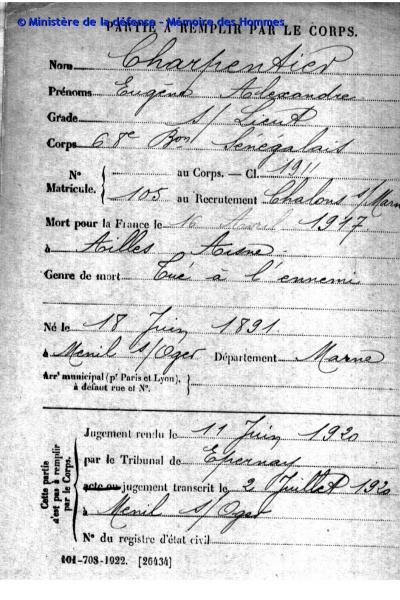 © Ministère de la défense - Mémoire des Hommes
PARTIE A REMPLIR PAR LE CORPS.
Nom Charpentier
Prénoms Eugène Alexandre
Grade s/ Lieut
Corps 68e Bon Sénégalais
N° Matricule. { au Corps. — Cl. 1911
105 au Recrutement Chalons s/ Marne
Mort pour la France le 16 Avril 1917
à Ailles Aisne
Genre de mort Tué à l'ennemi
Né le 18 Juin 1891
à Menil s/ Oger Département Marne
Arrt municipal (pr Paris et Lyon), à défaut rue et N°. }
Cette partie n'est pas à remplir par le Corps.
Jugement rendu le 11 Juin 1920
par le Tribunal de Epernay
acte ou jugement transcrit le 2 Juillet 1920
à Menil s/ Oger
N° du registre d'état civil
101-708-1922. [26434]